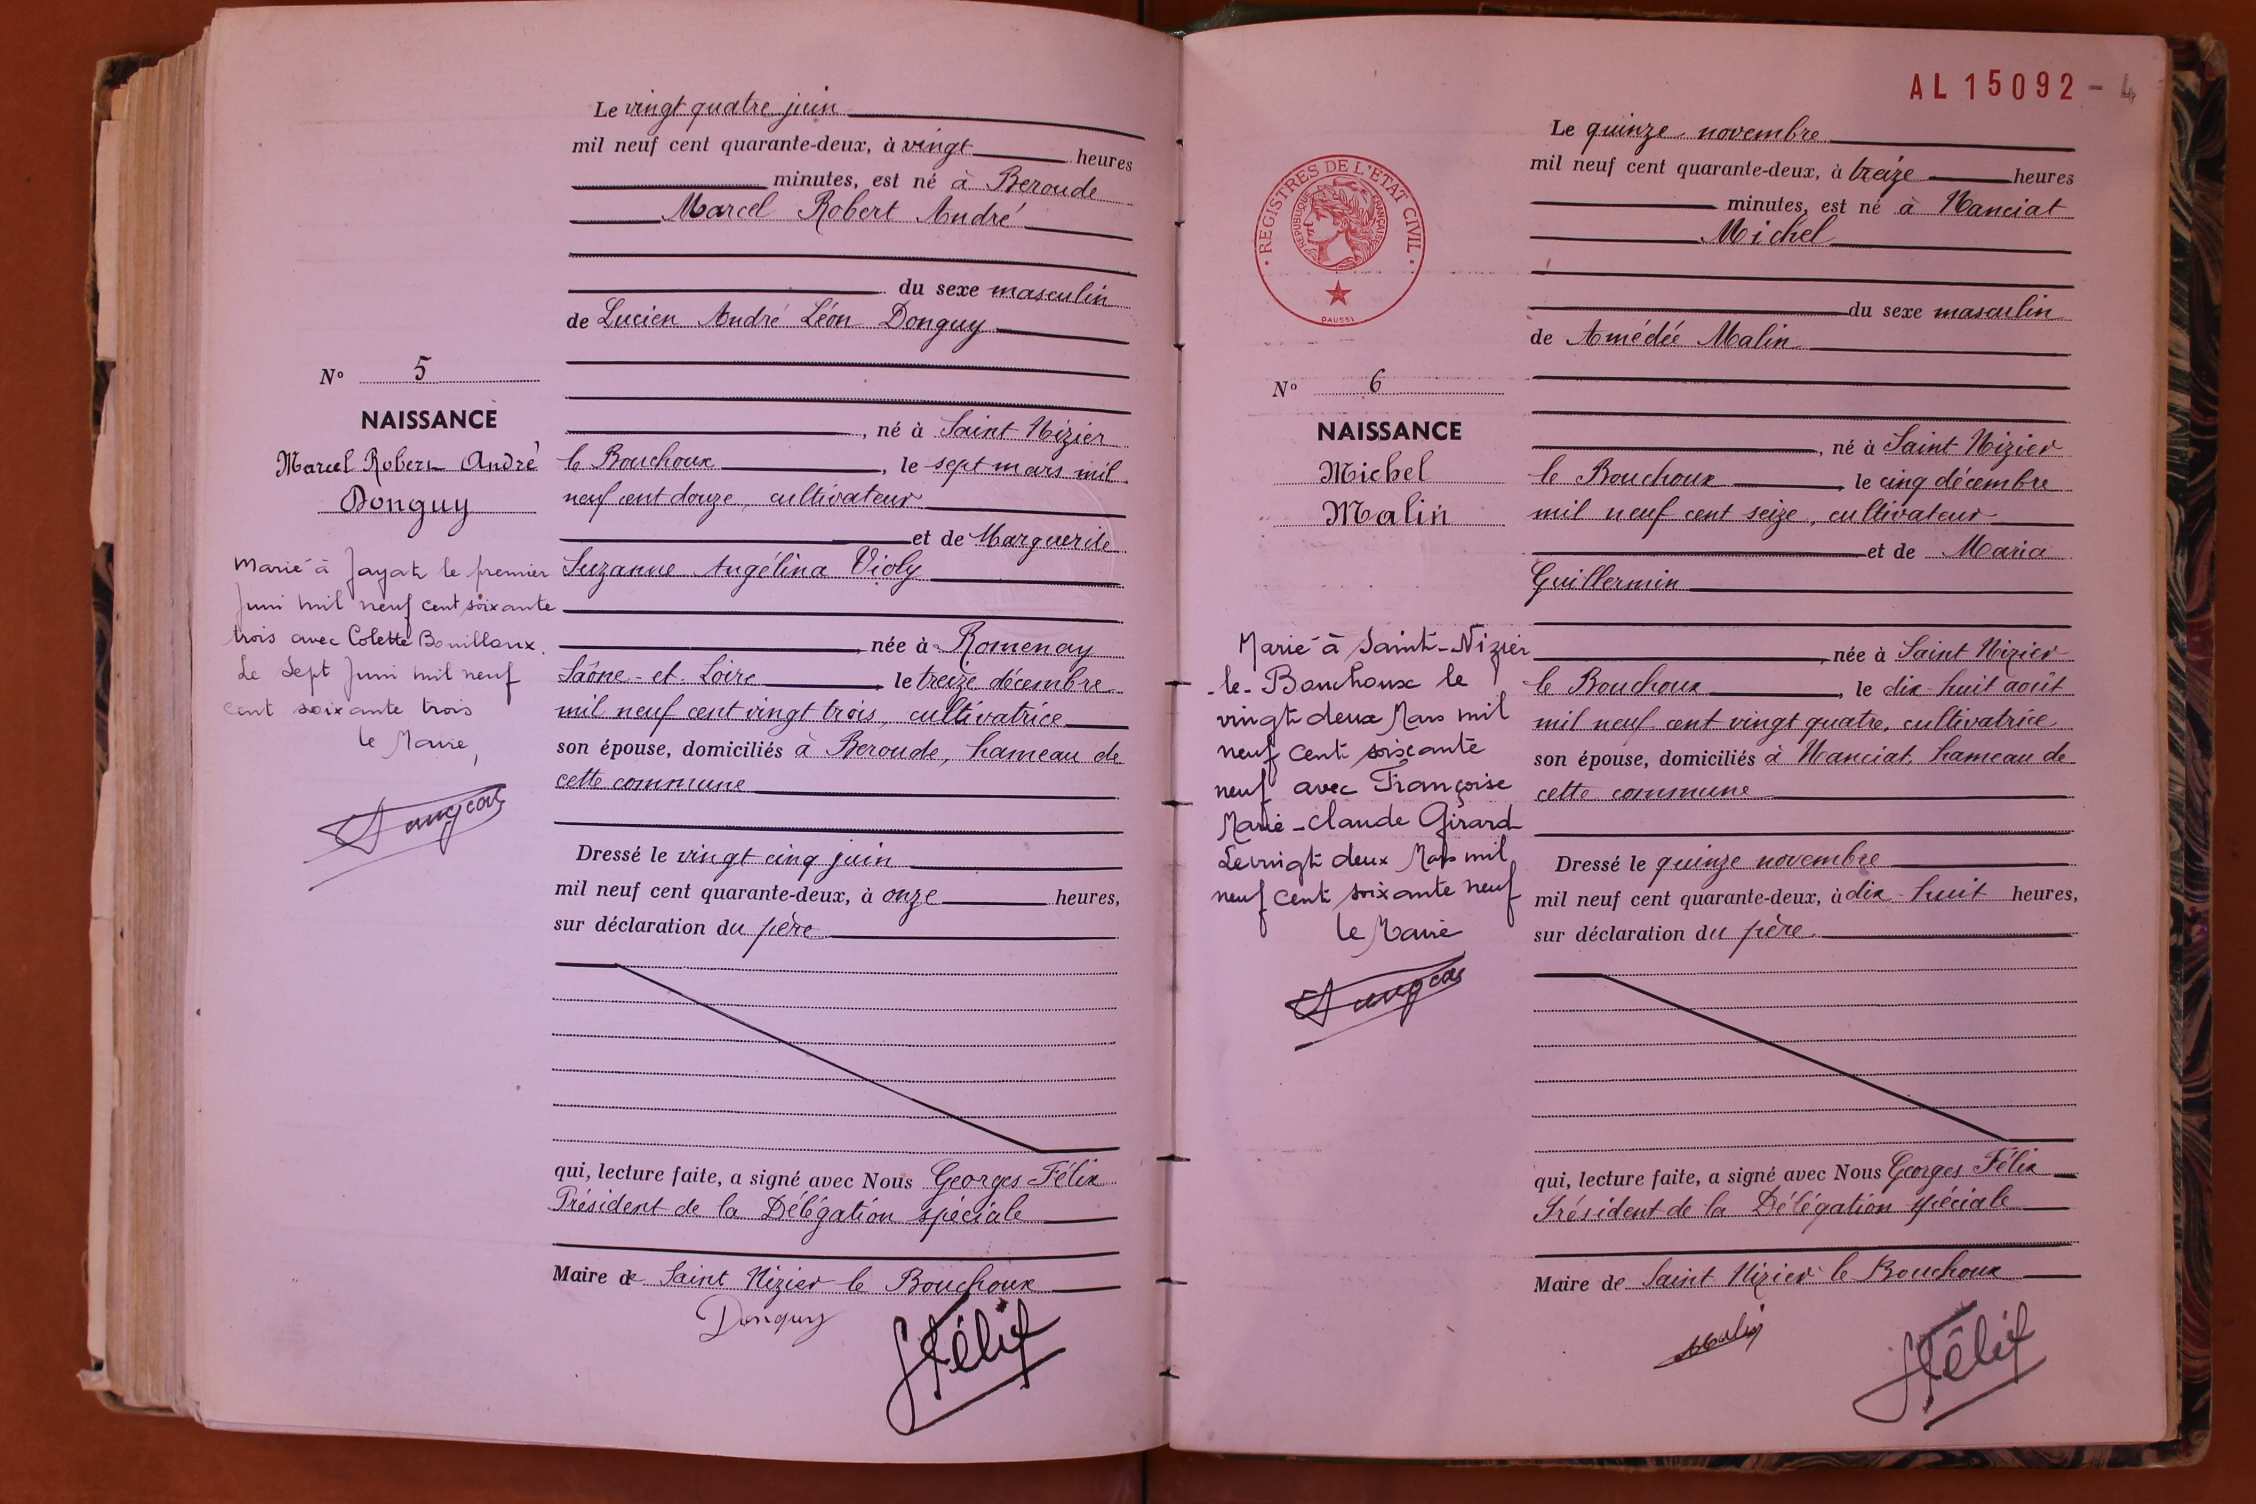 Le vingt quatre juin
mil neuf cent quarante-deux, à vingt heures
minutes, est né à Beroude
Marcel Robert André
du sexe masculin
de Lucien André Léon Donguy
N° 5
NAISSANCE
Marcel Robert André
Donguy
, né à Saint Nizier
le Bouchoux , le sept mars mil
neuf cent douze, cultivateur
et de Marguerite
Suzanne Angélina Violy
née à Romenay
Saône-et-Loire le treize décembre
mil neuf cent vingt trois, cultivatrice
son épouse, domiciliés à Beroude, hameau de
cette commune
Marié à Jayat le premier
Juin mil neuf cent soixante
trois avec Colette Bouilloux.
Le Sept Juin mil neuf
cent soixante trois
le Maire,
Dressé le vingt cinq juin
mil neuf cent quarante-deux, à onze heures,
sur déclaration du père
qui, lecture faite, a signé avec Nous Georges Félix
Président de la Délégation spéciale
Maire de Saint Nizier le Bouchoux
Donguy
Félix
AL 15092 - 4
REGISTRES DE L'ÉTAT CIVIL
RÉPUBLIQUE FRANÇAISE
DAUSSI
Le quinze novembre
mil neuf cent quarante-deux, à treize heures
minutes, est né à Nanciat
Michel
du sexe masculin
de Amédée Malin
N° 6
NAISSANCE
Michel
Malin
, né à Saint Nizier
le Bouchoux , le cinq décembre
mil neuf cent seize, cultivateur
et de Maria
Guillermin
, née à Saint Nizier
le Bouchoux , le dix-huit août
mil neuf cent vingt quatre, cultivatrice
son épouse, domiciliés à Nanciat, hameau de
cette commune
Marié à Saint-Nizier
-le-Bouchoux le
vingt deux Mars mil
neuf cent soixante
neuf avec Françoise
Marie-Claude Girard
Le vingt deux Mars mil
neuf cent soixante neuf
le Maire
Dressé le quinze novembre
mil neuf cent quarante-deux, à dix-huit heures,
sur déclaration du père
qui, lecture faite, a signé avec Nous Georges Félix
Président de la Délégation spéciale
Maire de Saint Nizier le Bouchoux
Malin
Félix